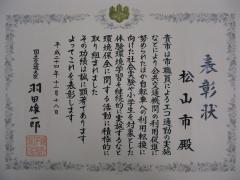 表彰状
松山市 殿
貴市は市職員によるエコ通勤の実施
などにより公共交通機関の利用促進に
努められたほか自転車への利用転換に
向けた社会実験や小学生を対象とした
体験環境学習を継続的に実施するなど
環境保全に関する活動に積極的に
取り組まれました
その功績は誠に顕著であります
よってこれを表彰します
平成二十四年十二月十八日
国土交通大臣
羽田雄一郎